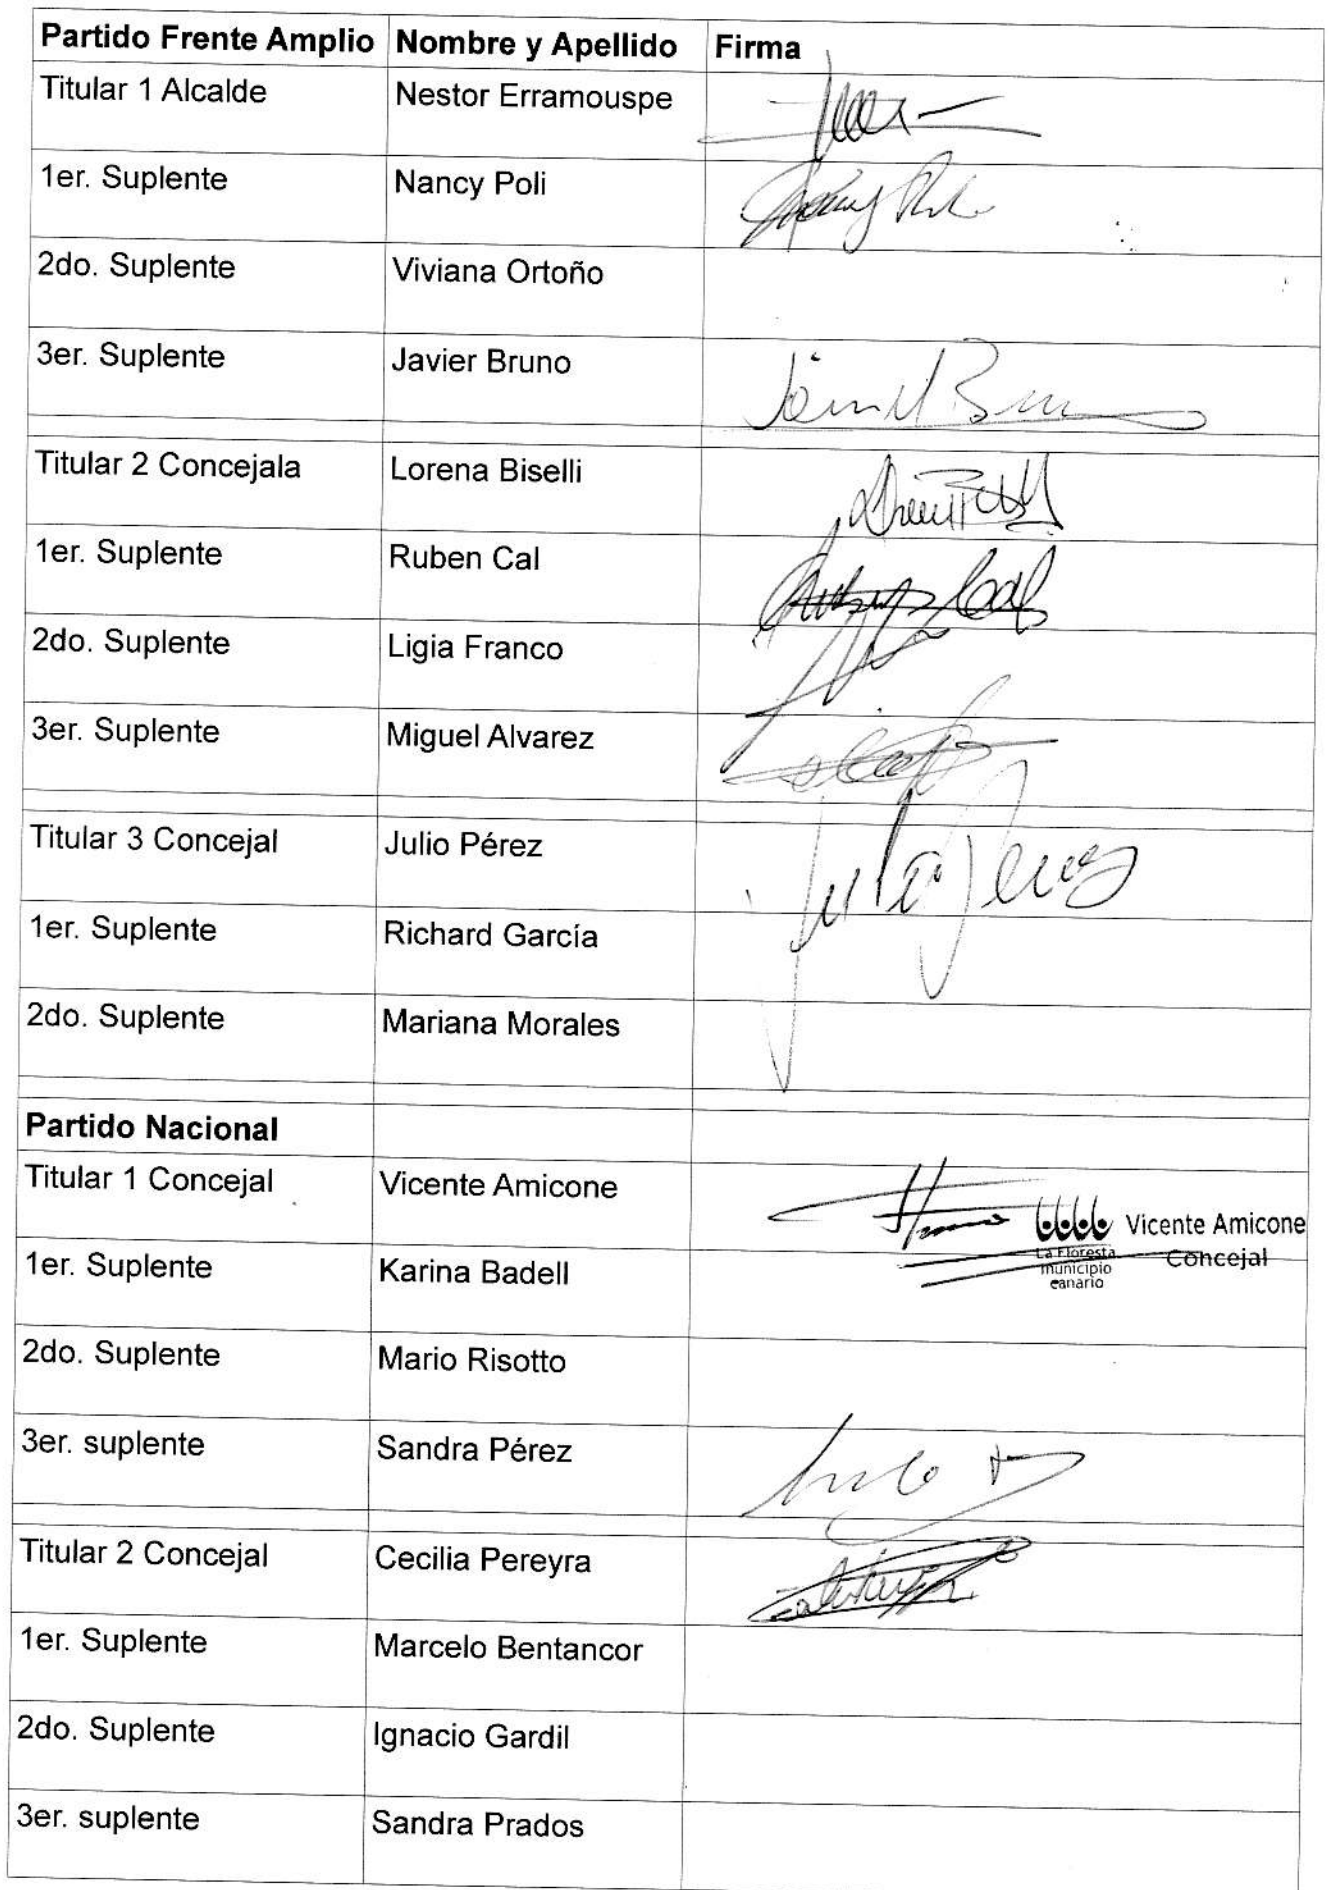 Partido Frente Amplio Nombre y Apellido Firma
Titular 1 Alcalde Nestor Erramouspe
1er. Suplente Nancy Poli
2do. Suplente Viviana Ortoño
3er. Suplente Javier Bruno
Titular 2 Concejala Lorena Biselli
1er. Suplente Ruben Cal
2do. Suplente Ligia Franco
3er. Suplente Miguel Alvarez
Titular 3 Concejal Julio Pérez
1er. Suplente Richard García
2do. Suplente Mariana Morales
Partido Nacional
Titular 1 Concejal Vicente Amicone
Vicente Amicone
Concejal
La Floresta
municipio
canario
1er. Suplente Karina Badell
2do. Suplente Mario Risotto
3er. suplente Sandra Pérez
Titular 2 Concejal Cecilia Pereyra
1er. Suplente Marcelo Bentancor
2do. Suplente Ignacio Gardil
3er. suplente Sandra Prados